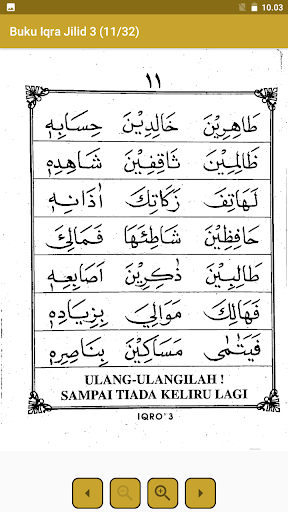 10.03
Buku Iqra Jilid 3 (11/32)
١١
طَاهِرِيْنَ خَالِدِيْنَ حِسَابِهٖ
ظَالِمِيْنَ ثَاقِفِيْنَ شَاهِدِهٖ
لَهَاتِفَ زَكَاتِكَ اَذَانِهٖ
حَافِظِيْنَ شَاطِئِهَا فَمَالِئَ
طَالِبِيْنَ ذٰكِرِيْنَ اَصَابِعِهٖ
فَهَالِكَ مَوَالِيَ بِزِيَادِهٖ
فَيَتٰمٰى مَسَاكِيْنَ بِنَاصِرِهٖ
ULANG-ULANGILAH !
SAMPAI TIADA KELIRU LAGI
IQRO' 3